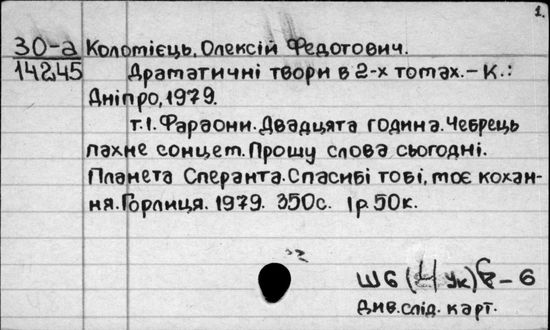 2.
30-а Коломієць, Олексій Федотович.
14245 Драматичні твори в 2-х томах.-К.:
Дніпро, 1979.
т.1. Фараони. Двадцята година. Чебрець
пахне сонцем. Прошу слова сьогодні.
Планета Сперанта. Спасибі тобі, моє кохан-
ня. Горлиця. 1979. 350с. 1р.50к.
Ш6(4Ук)
-6
Див. слід. карт.